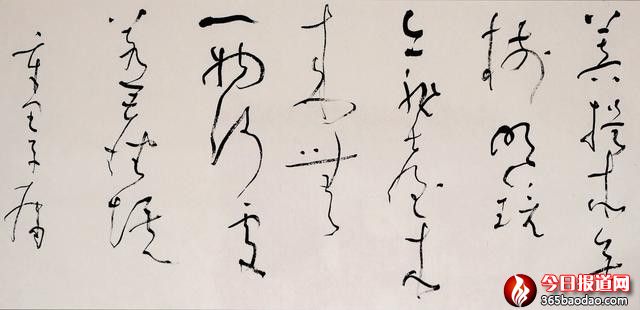 菩提本無
樹明鏡
亦非臺本
来無
一物何處
惹塵埃
今日报道网
365baodao.com